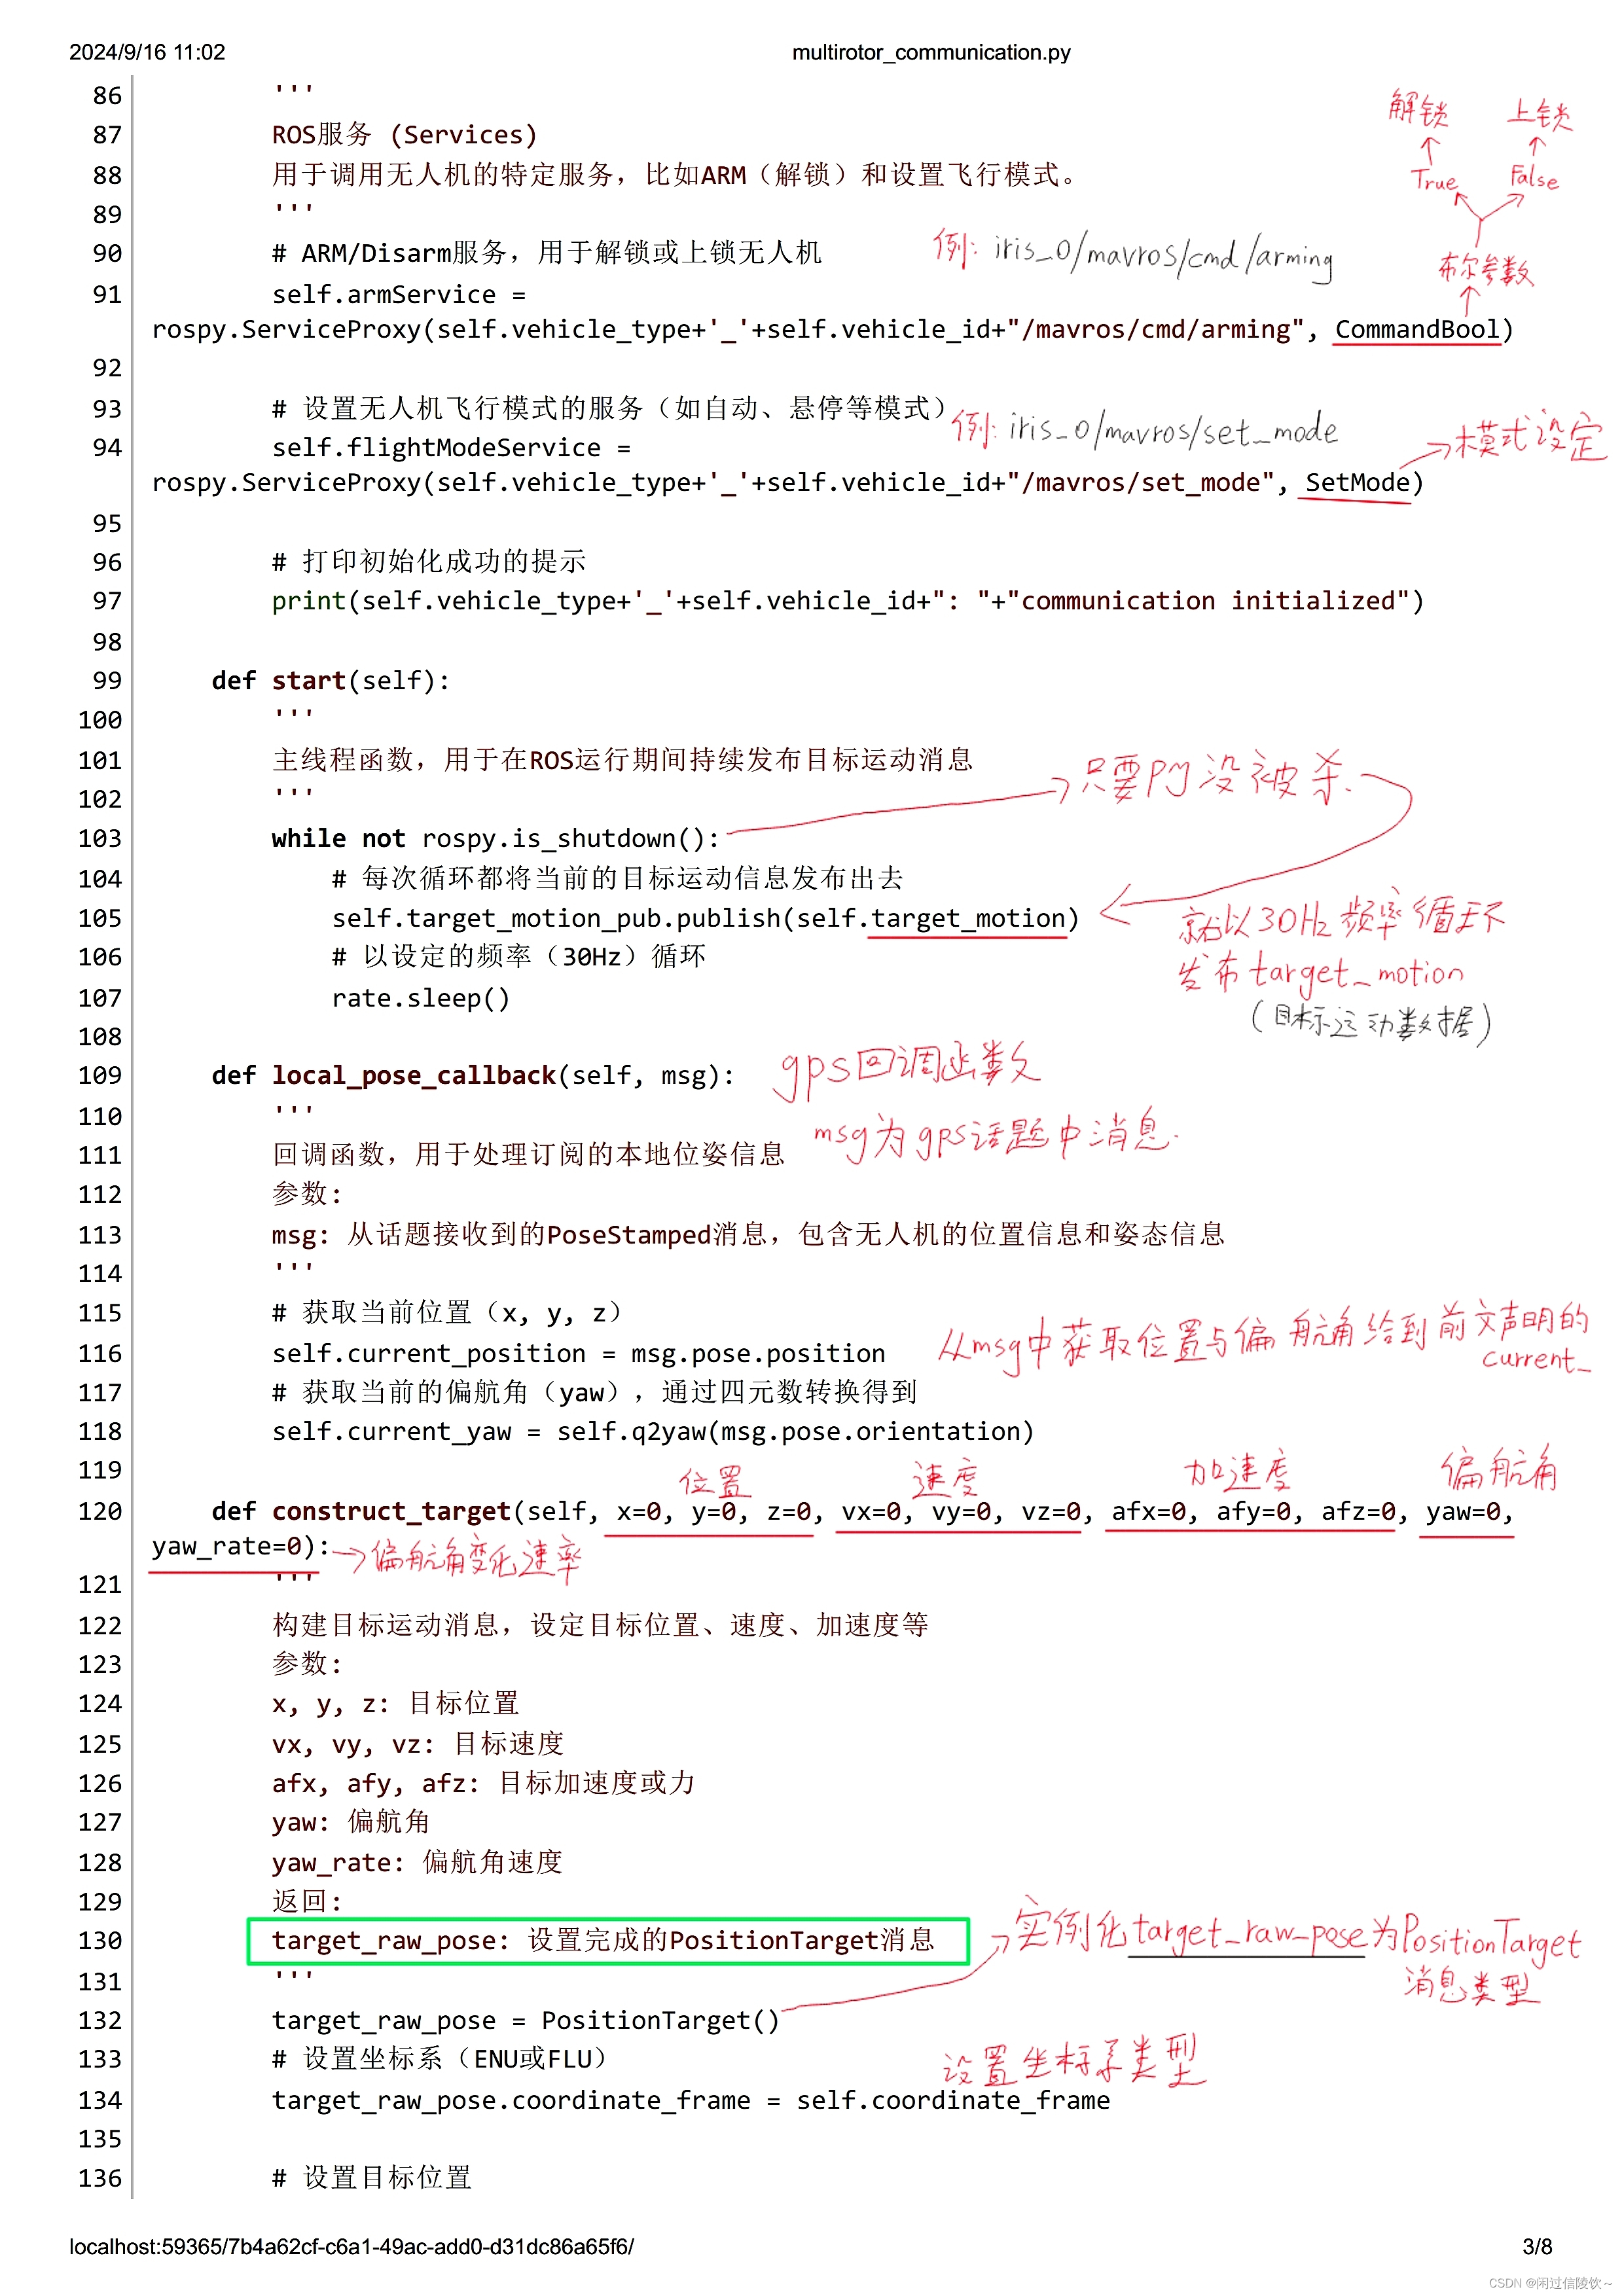 2024/9/16 11:02
multirotor_communication.py
86 '''
87 ROS服务 (Services)
88 用于调用无人机的特定服务，比如ARM（解锁）和设置飞行模式。
89 '''
解锁 上锁
True False
布尔参数
90 # ARM/Disarm服务，用于解锁或上锁无人机
例: iris_0/mavros/cmd/arming
91 self.armService =
rospy.ServiceProxy(self.vehicle_type+'_'+self.vehicle_id+"/mavros/cmd/arming", CommandBool)
92
93 # 设置无人机飞行模式的服务（如自动、悬停等模式）
例: iris_0/mavros/set_mode
模式设定
94 self.flightModeService =
rospy.ServiceProxy(self.vehicle_type+'_'+self.vehicle_id+"/mavros/set_mode", SetMode)
95
96 # 打印初始化成功的提示
97 print(self.vehicle_type+'_'+self.vehicle_id+": "+"communication initialized")
98
99 def start(self):
100 '''
101 主线程函数，用于在ROS运行期间持续发布目标运动消息
只要py没被杀.
102 '''
103 while not rospy.is_shutdown():
104 # 每次循环都将当前的目标运动信息发布出去
105 self.target_motion_pub.publish(self.target_motion)
就以30Hz频率循环
106 # 以设定的频率（30Hz）循环
发布target_motion
107 rate.sleep()
(目标运动数据)
108
109 def local_pose_callback(self, msg):
gps回调函数
110 '''
msg为gps话题中消息.
111 回调函数，用于处理订阅的本地位姿信息
112 参数:
113 msg: 从话题接收到的PoseStamped消息，包含无人机的位置信息和姿态信息
114 '''
115 # 获取当前位置（x, y, z）
116 self.current_position = msg.pose.position
从msg中获取位置与偏航角给到前文声明的
current_
117 # 获取当前的偏航角（yaw），通过四元数转换得到
118 self.current_yaw = self.q2yaw(msg.pose.orientation)
119
位置 速度 加速度 偏航角
120 def construct_target(self, x=0, y=0, z=0, vx=0, vy=0, vz=0, afx=0, afy=0, afz=0, yaw=0,
yaw_rate=0):
偏航角变化速率
121 '''
122 构建目标运动消息，设定目标位置、速度、加速度等
123 参数:
124 x, y, z: 目标位置
125 vx, vy, vz: 目标速度
126 afx, afy, afz: 目标加速度或力
127 yaw: 偏航角
128 yaw_rate: 偏航角速度
129 返回:
130 target_raw_pose: 设置完成的PositionTarget消息
实例化target_raw_pose为PositionTarget
消息类型
131 '''
132 target_raw_pose = PositionTarget()
133 # 设置坐标系（ENU或FLU）
设置坐标系类型
134 target_raw_pose.coordinate_frame = self.coordinate_frame
135
136 # 设置目标位置
localhost:59365/7b4a62cf-c6a1-49ac-add0-d31dc86a65f6/
3/8
CSDN @闲过信陵饮~